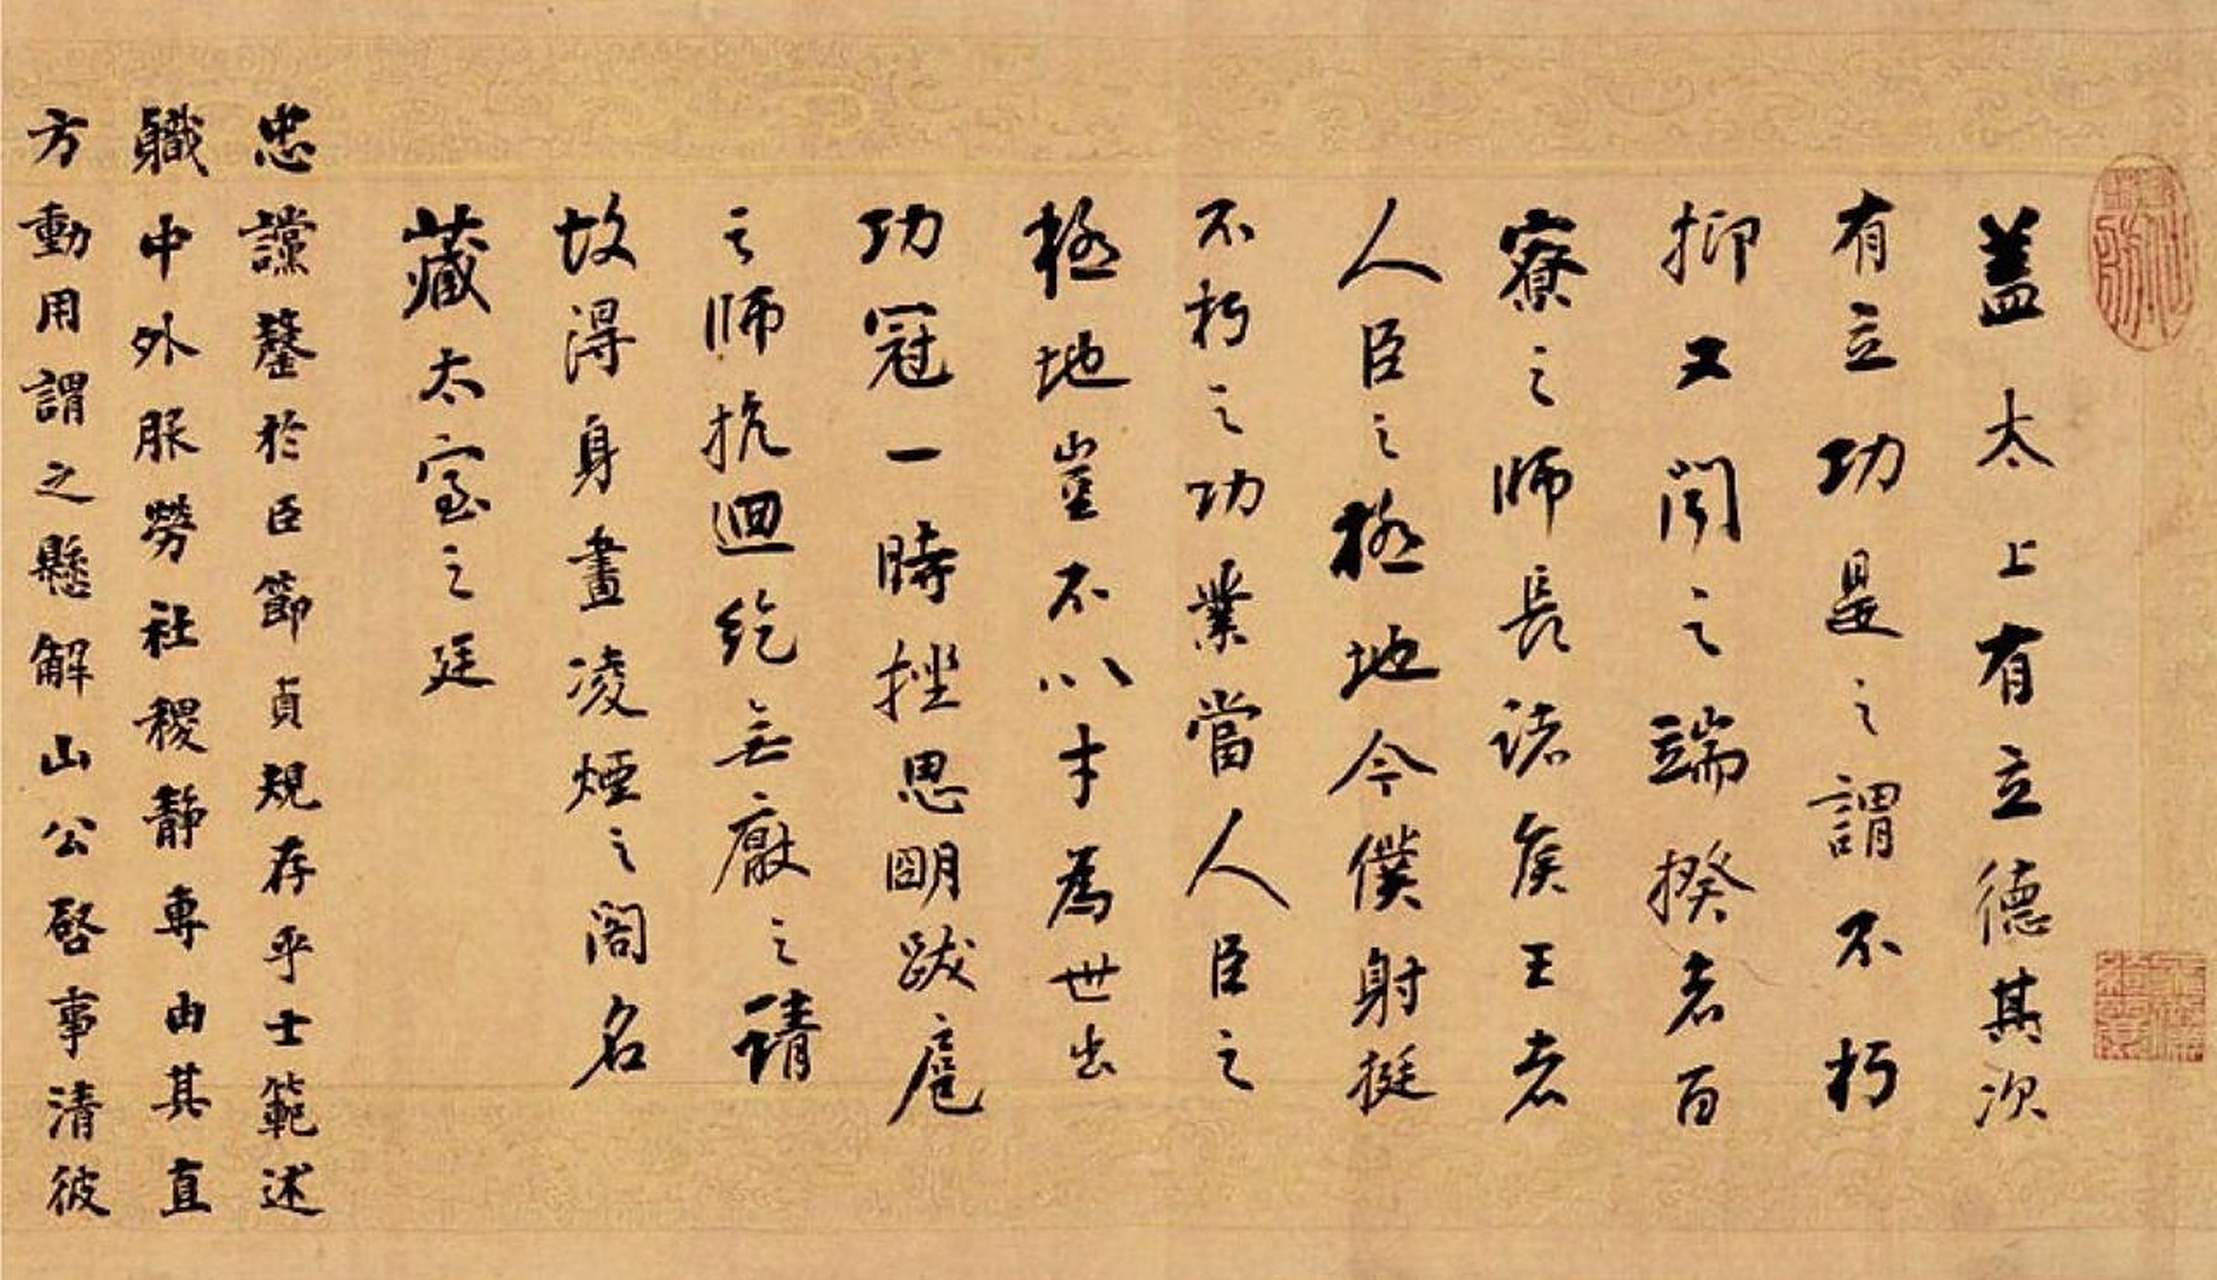 蓋太上有立德其次
有立功是之謂不朽
抑又聞之端揆者百
寮之師長諸侯王者
人臣之極地今僕射挺
不朽之功業當人臣之
極地豈不以才為世出
功冠一時挫思明跋扈
之師抗迴紇無厭之請
故得身畫凌煙之閣名
藏太室之廷
忠讜罄於臣節貞規存乎士範述
職中外服勞社稷靜專由其直
方動用謂之懸解山公啓事清彼